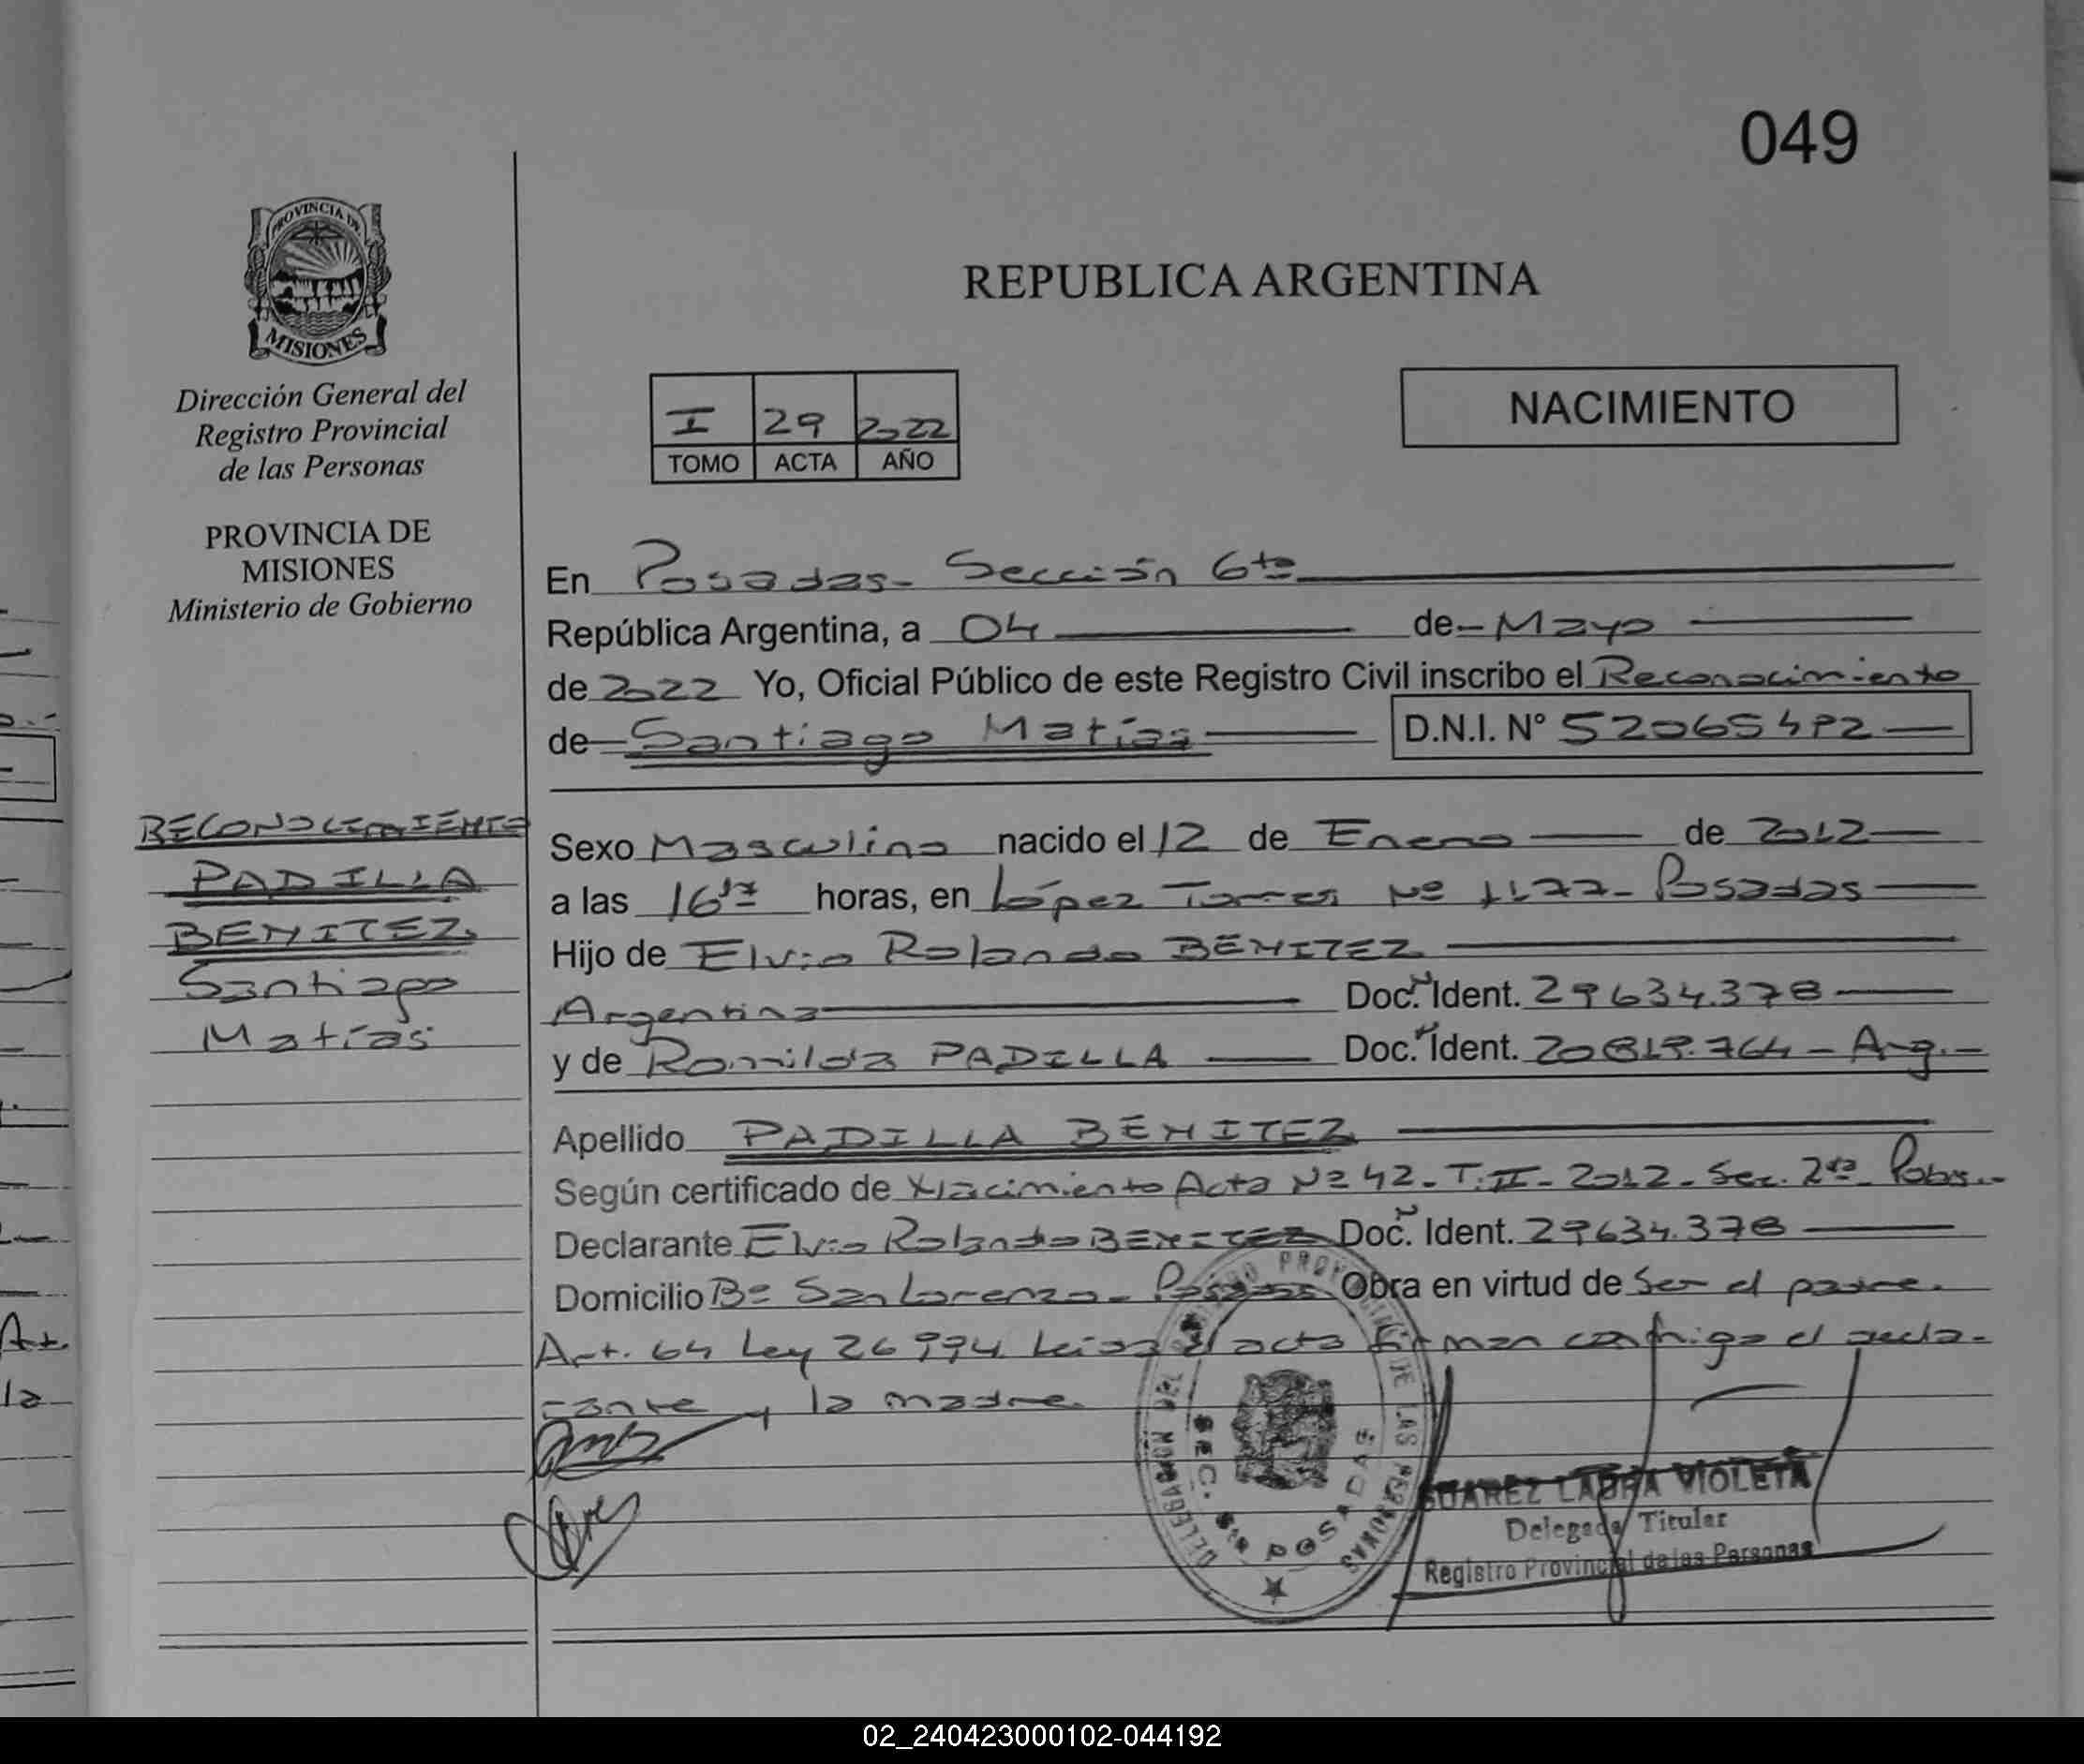 049
PROVINCIA DE
MISIONES
Dirección General del
Registro Provincial
de las Personas
PROVINCIA DE
MISIONES
Ministerio de Gobierno
REPUBLICA ARGENTINA
I 29 2022
TOMO ACTA AÑO
NACIMIENTO
En Posadas - Sección 6ta
República Argentina, a 04 de Mayo
de 2022 Yo, Oficial Público de este Registro Civil inscribo el Reconocimiento
de Santiago Matías D.N.I. N° 52065492
RECONOCIMIENTO
PADILLA
BENITEZ
Santiago
Matías
Sexo Masculino nacido el 12 de Enero de 2012
a las 16 horas, en López Torres Nº 1177 - Posadas
Hijo de Elvio Rolando BENITEZ
Argentina Doc. Ident. 29634.378
y de Romilda PADILLA Doc. Ident. 20819.764 - Arg.-
Apellido PADILLA BENITEZ
Según certificado de Nacimiento Acta Nº 42 - T: II - 2012 - Sec. 2da
Declarante Elvio Rolando BENITEZ Doc. Ident. 29634.378
Domicilio Bº San Lorenzo - Posadas Obra en virtud de Ser el padre.
Art. 64 Ley 26994 Leída el acta firman conmigo el decla-
rante y la madre.
SEC. 6ta POSADAS
SUAREZ LAURA VIOLETA
Delegada Titular
Registro Provincial de las Personas
Art.
la
02_240423000102-044192